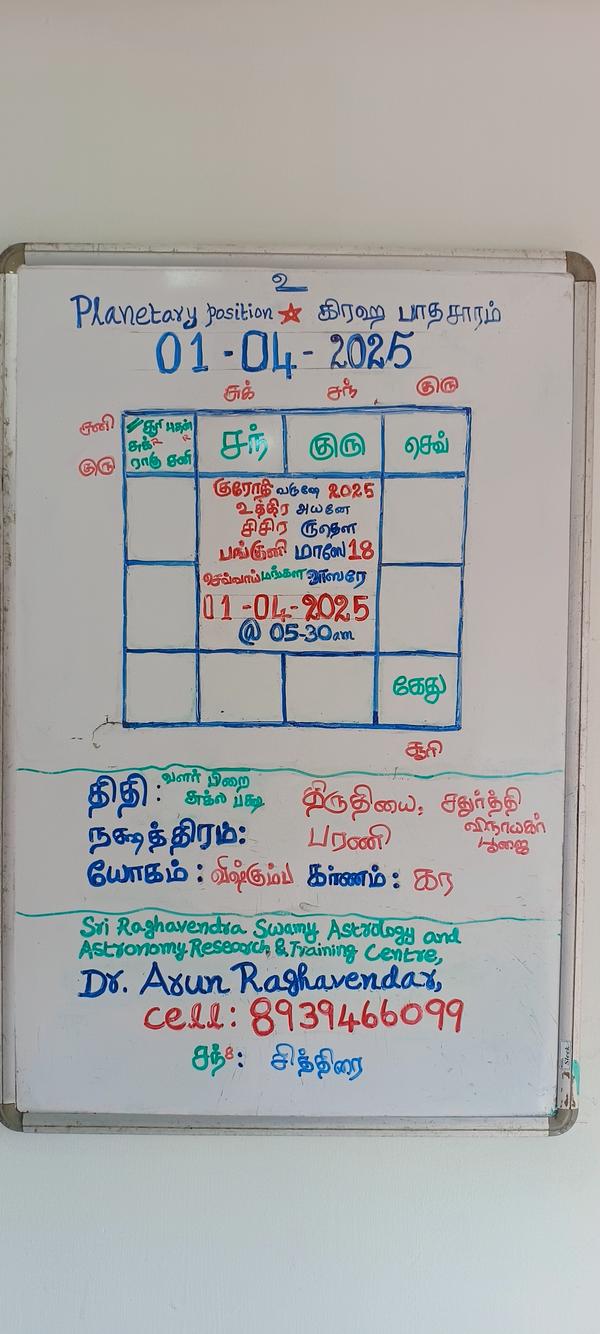 உ
Planetary position ★ கிரஹ பாதசாரம்
01-04-2025
சுக் சந் குரு
சனி
குரு
சூரி புதன்
சுக் R R
ராகு சனி
சந்
குரு
செவ்
குரோதி வருஷே 2025
உத்திர அயனே
சிசிர ருதௌ
பங்குனி மாஸே 18
செவ்வாய் மங்கள வாஸரே
01-04-2025
@ 05-30am
கேது
சூரி
திதி: வளர் பிறை
சுக்ல பக்ஷ
திருதியை, சதுர்த்தி
விநாயகர்
பூஜை
நக்ஷத்திரம்: பரணி
யோகம்: விஷ்கும்ப கர்ணம்: கர
Sri Raghavendra Swamy Astrology and
Astronomy Research & Training Centre,
Dr. Arun Raghavendar,
Cell: 8939466099
சந் 8: சித்திரை